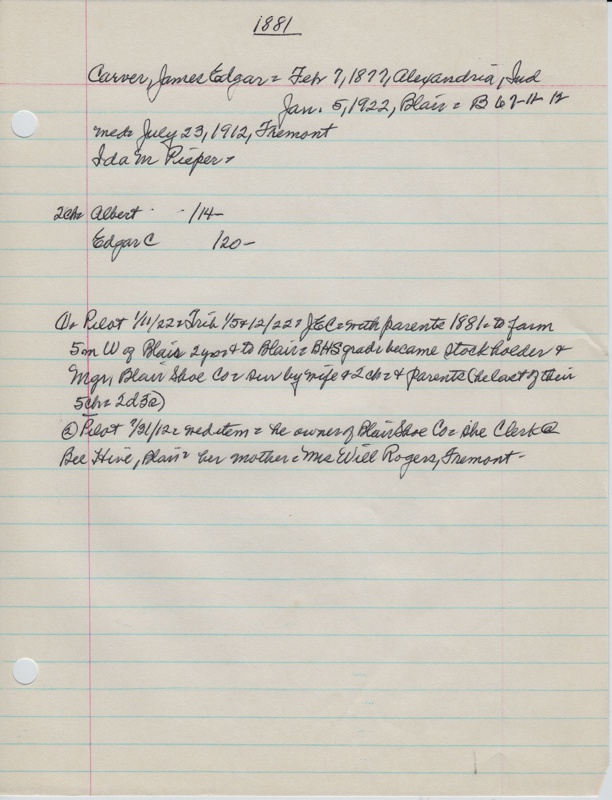 1881
Carver, James Edgar = Feb 7, 1877, Alexandria, Ind
Jan. 5, 1922, Blair = B 67-11-12
med = July 23, 1912, Fremont
Ida M Pieper =
2ch = Albert - - /14-
Edgar C /20-
① = Pilot 1/11/22 = Trib 1/5 & 12/22 = JEC = with parents 1881 = to farm
5m W of Blair 2 yrs & to Blair = BHS grad & became stockholder &
Mgr, Blair Shoe Co = sur by wife & 2 ch = & parents (he last of their
5ch = 2d 3s)
② Pilot 7/31/12 = wed item = he owner of Blair Shoe Co = she Clerk @
Bee Hive, Blair = her mother = Mrs Will Rogers, Fremont -